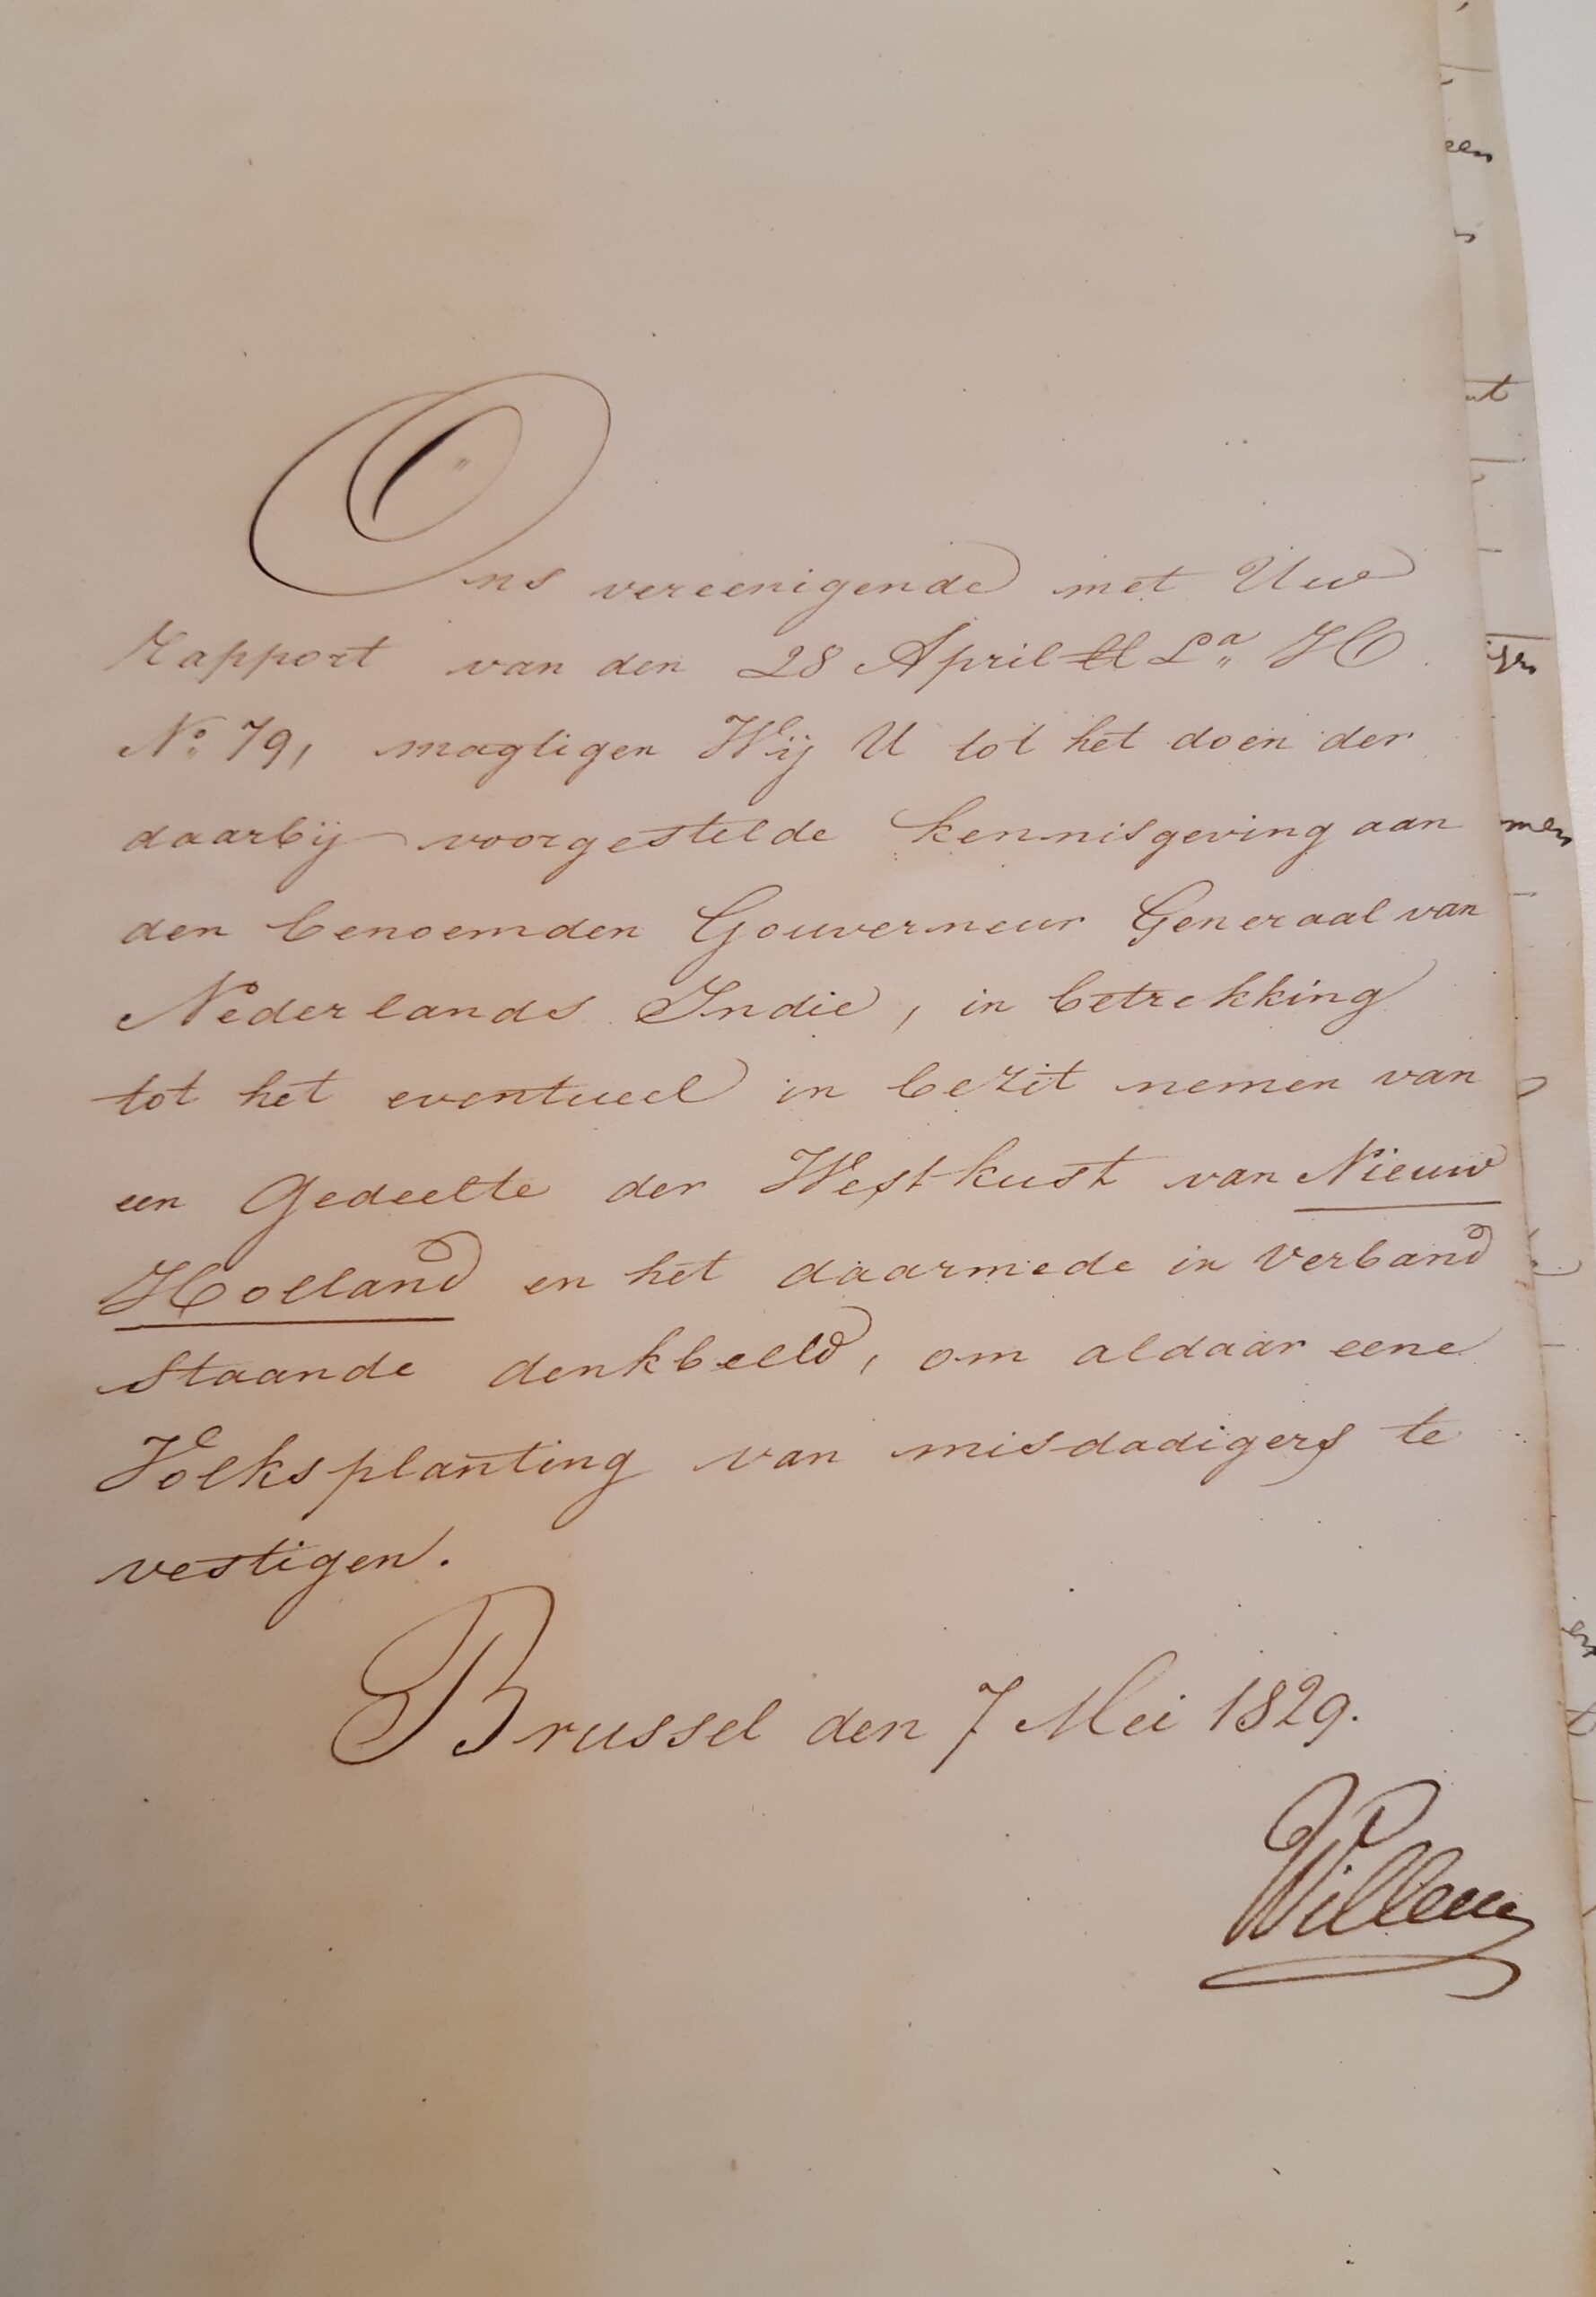 Ons vereenigende met Uw
Rapport van den 28 April ll La H
No 79, magtigen Wij U tot het doen der
daarbij voorgestelde kennisgeving aan
den benoemden Gouverneur Generaal van
Nederlands Indie, in betrekking
tot het eventueel in bezit nemen van
een Gedeelte der Westkust van Nieuw
Holland en het daarmede in verband
staande denkbeeld, om aldaar eene
Volksplanting van misdadigers te
vestigen.
Brussel den 7 Mei 1829.
Willem